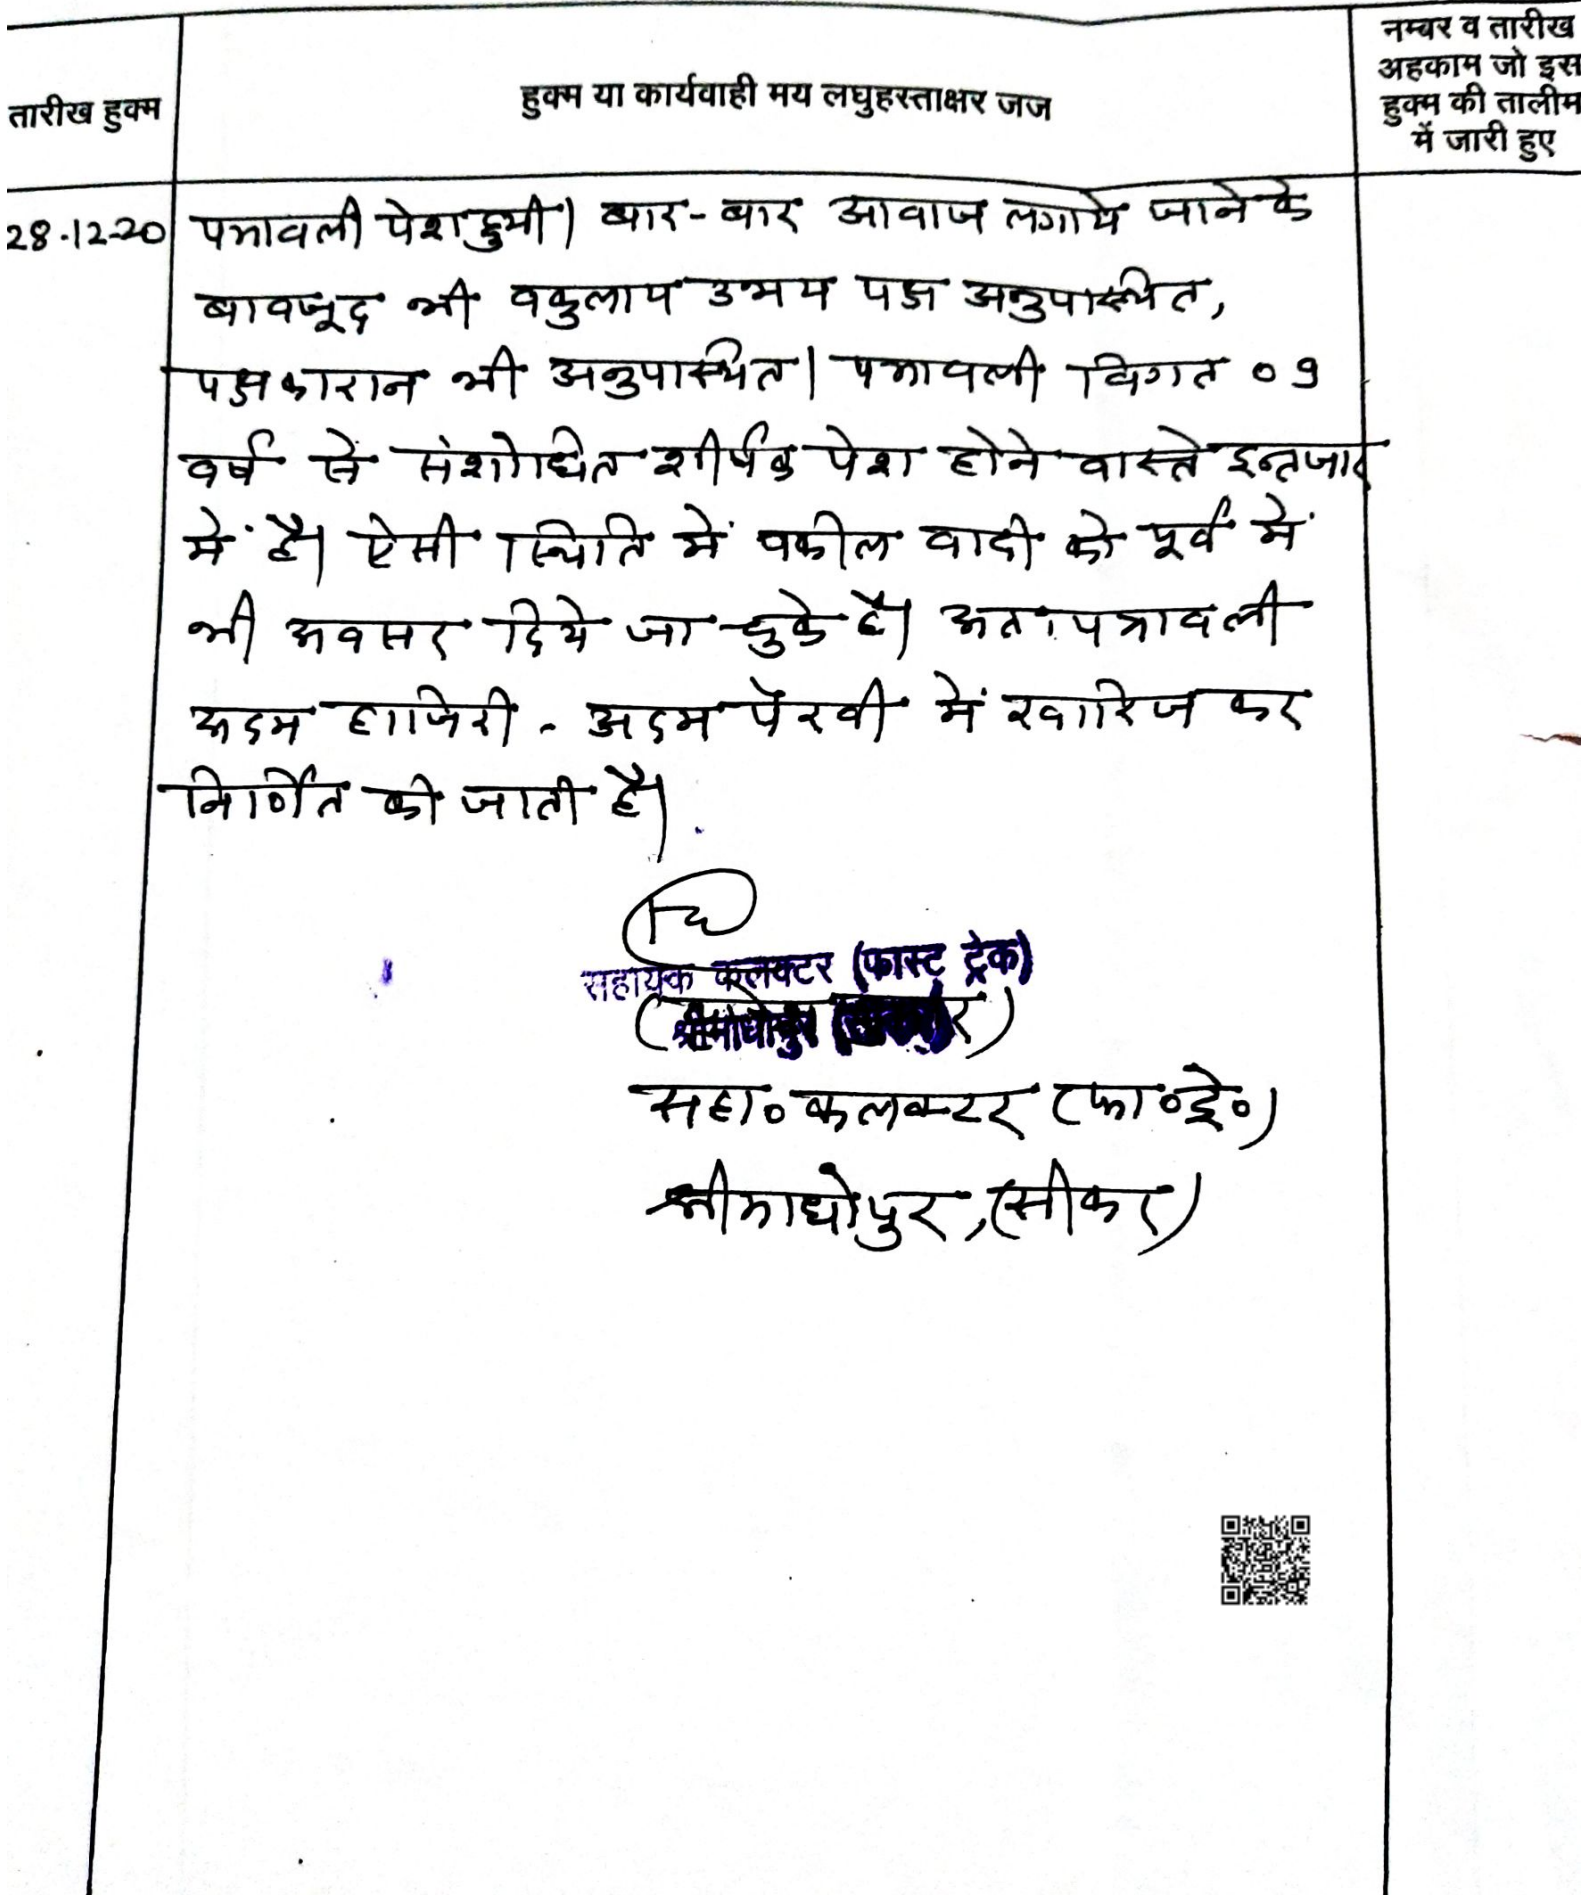 तारीख हुक्म
हुक्म या कार्यवाही मय लघुहस्ताक्षर जज
नम्बर व तारीख
अहकाम जो इस
हुक्म की तालीम
में जारी हुए
28.12.20
पत्रावली पेश हुयी। बार-बार आवाज लगाये जाने के
बावजूद भी वकुलाय उभय पक्ष अनुपस्थित,
पक्षकारान भी अनुपस्थित। पत्रावली विगत ०9
वर्ष से संशोधित शीर्षक पेश होने वास्ते इन्तजार
में है। ऐसी स्थिति में वकील वादी को पूर्व में
भी अवसर दिये जा चुके है। अतः पत्रावली
अदम हाजिरी - अदम पैरवी में खारिज कर
निर्णित की जाती है।
सहायक कलक्टर (फास्ट ट्रेक)
श्रीमाधोपुर
सहा० कलक्टर (फा०ट्रे०)
श्रीमाधोपुर, (सीकर)